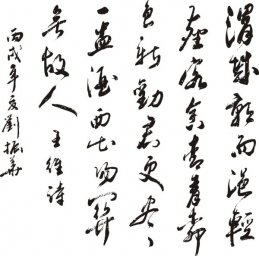 渭城朝雨浥輕
塵客舍青青柳
色新勸君更盡
一盃酒西出陽關
無故人 王維詩
丙戌年夏劉振華